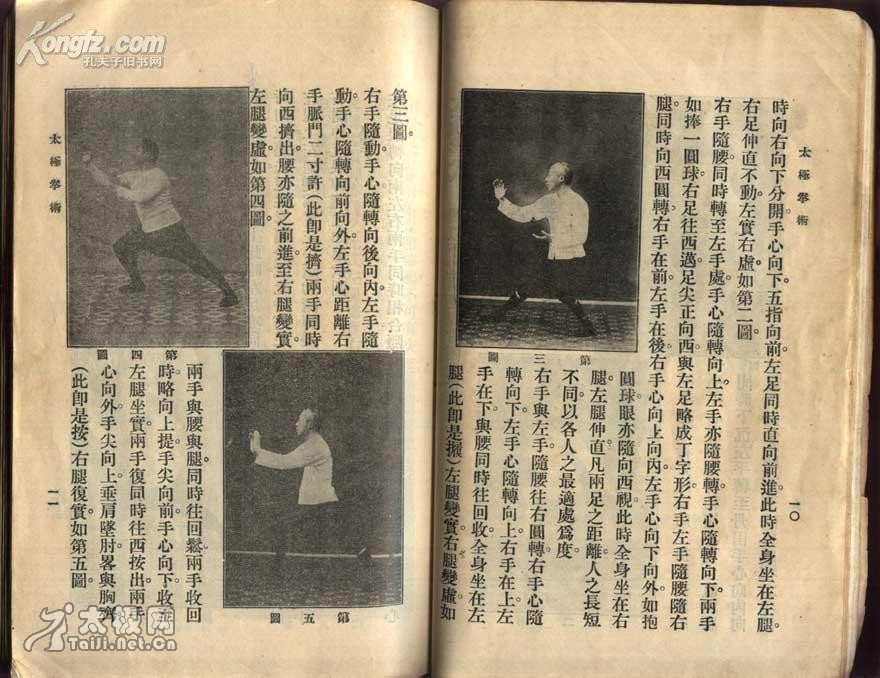 太極拳術
一〇
時向右向下分開手心向下五指向前左足同時直向前進此時全身坐在左腿
右足伸直不動左實右虛如第二圖。
右手隨腰同時轉至左手處手心隨轉向上左手亦隨腰轉手心隨轉向下兩手
如捧一圓球右足往西邁足尖正向西與左足略成丁字形右手左手隨腰隨右
腿同時向西圓轉右手在前左手在後右手心向上向內左手心向下向外如抱
圓球眼亦隨向西視此時全身坐在右
腿左腿伸直凡兩足之距離人之長短
不同以各人之最適處爲度
右手與左手隨腰往右圓轉右手心隨
轉向下左手心隨轉向上右手在上左
手在下與腰同時往回收全身坐在左
腿(此卽是攦)左腿變實右腿變虛如
第三圖
第三圖。
右手隨動手心隨轉向後向內左手隨
動手心隨轉向前向外左手心距離右
手脈門二寸許(此卽是擠)兩手同時
向西擠出腰亦隨之前進至右腿變實
左腿變虛如第四圖。
第四圖
兩手與腰與腿同時往回鬆兩手收回
時略向上提手尖向前手心向下收至
左腿坐實兩手復同時往西按出兩手
心向外手尖向上垂肩墜肘畧與胸齊
(此卽是按)右腿復實如第五圖。
第五圖
太極拳術
一一
Kongfz.com
孔夫子旧书网
太极网
Taiji.net.cn